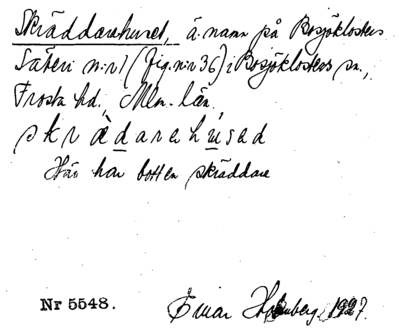 Skräddarehuset, ä. namn på Bosjöklosters
Säteri n:r 1 (fig. n:r 36) i Bosjöklosters sn.,
Frosta hd., Mlm. län.
skrädarehused
Här har bott en skräddare
Nr 5548.
Einar Holmberg. 1927.